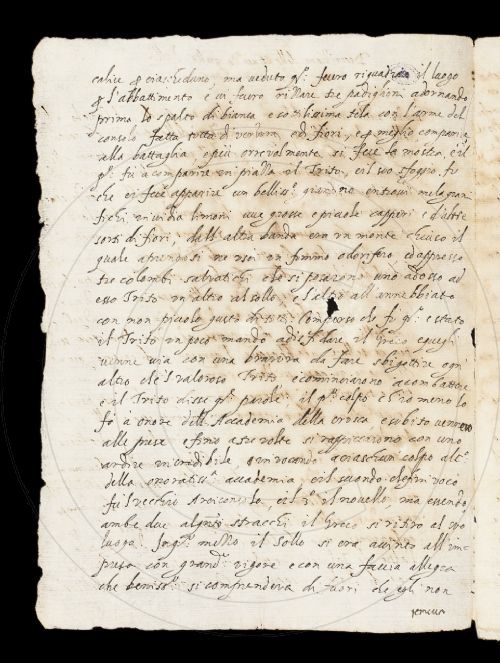 calice et ciascheduno, ma veduto q.º feuro riquadrato il luogo
et l'abbattimento e vi feuro rizzare tre padiglioni adornando
prima lo spalto di bianca e sottilissima tela con l'arme del
consolo fatta tutta di verdura, e di fiori, e et meglio comparisca
alla battaglia, e più orrevolmente si fece la mostra, e il
p.º fu a comparire in piazza il Trito, e il suo sfoggio fu
che ei fece apparire un belliss.º giardino entrovi melagrane
fichi uva limoni uve grosse e piccole capperi, e d'altre
sorti di fiori, dall'altra banda era un monte chiuso il
quale aprendosi ne uscì un fummo odorifero, ed appresso
tre colombi salvatichi che si posarono uno addosso ad
esso Trito un altro al sollo, e l'altro all'annebbiato
con non piccolo gusto di tutti. Comparso che fu q.º e stato
il Trito un poco mandò a disfidare il Greco e quegli
venne via con una bravura da fare sbigottire ogni
altro che 'l valoroso Trito, e cominciarono a combattere
e il Trito disse q.e parole, il p.º colpo ch'io meno lo
fo a onore dell'Accademia della crusca, e subito vennero
alle prese e fino a tre volte si rappiccarono con uno
ardire incredibile, e invocando a ciascun colpo alc.º
della onoratiss.ª accademia, e il secondo che invocò
fu il vecchio Arciconsolo, e il 3.º il novello, ma essendo
ambe due alquanto stracchi il Greco si ritirò al suo
luogo. In q.º mezzo il Sollo si era accinto all'im
presa con grand.º vigore e con una faccia allegra
che beniss.º si comprendeva di fuori che egli non
temeva